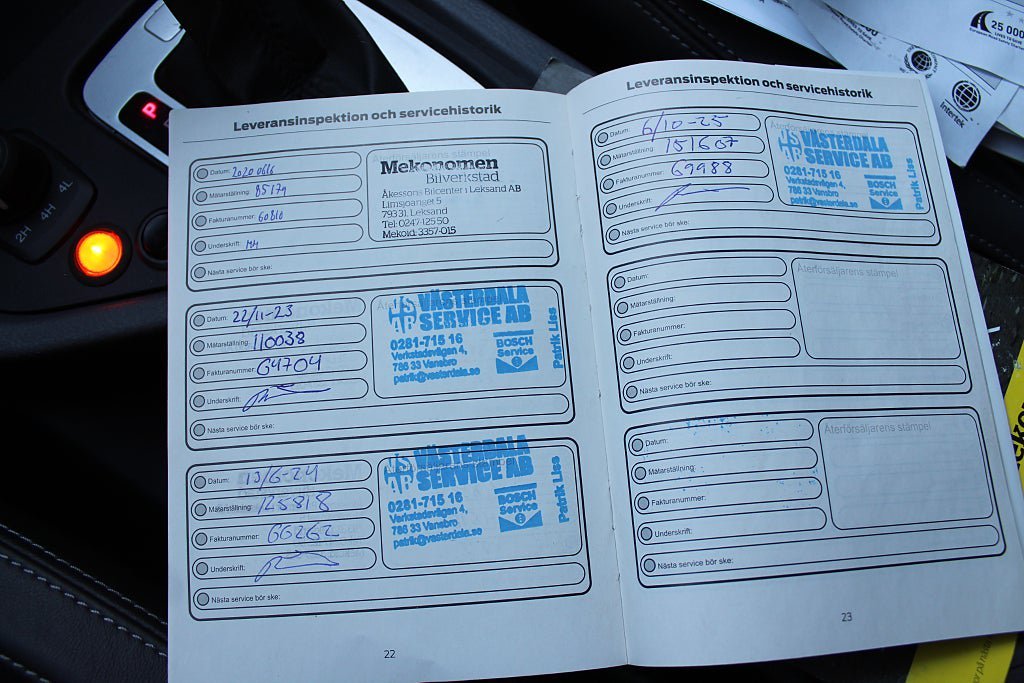 P
4L
4H
2H
Leveransinspektion och servicehistorik
Datum: 2020 0616
Mätarställning: 85179
Fakturanummer: 60810
Underskrift: MH
Nästa service bör ske:
Mekonomen
Bilverkstad
Åkessons Bilcenter i Leksand AB
Limsjoänget 5
793 31 Leksand
Tel: 0247-125 50
Mekoid: 3357-015
Datum: 22/11-23
Mätarställning: 110038
Fakturanummer: 64704
Underskrift:
Nästa service bör ske:
VÄSTERDALA
SERVICE AB
0281-715 16
Verkstadsvägen 4,
786 33 Vansbro
patrik@vasterdala.se
BOSCH
Service
Patrik Liss
Datum: 13/6-24
Mätarställning: 125818
Fakturanummer: 66262
Underskrift:
Nästa service bör ske:
VÄSTERDALA
SERVICE AB
0281-715 16
Verkstadsvägen 4,
786 33 Vansbro
patrik@vasterdala.se
BOSCH
Service
Patrik Liss
22
Leveransinspektion och servicehistorik
Datum: 6/10-25
Mätarställning: 151607
Fakturanummer: 69988
Underskrift:
Nästa service bör ske:
Återförsäljarens stämpel
VÄSTERDALA
SERVICE AB
0281-715 16
Verkstadsvägen 4,
786 33 Vansbro
patrik@vasterdala.se
BOSCH
Service
Patrik Liss
Datum:
Mätarställning:
Fakturanummer:
Underskrift:
Nästa service bör ske:
Återförsäljarens stämpel
Datum:
Mätarställning:
Fakturanummer:
Underskrift:
Nästa service bör ske:
Återförsäljarens stämpel
23
25 000
Intertek